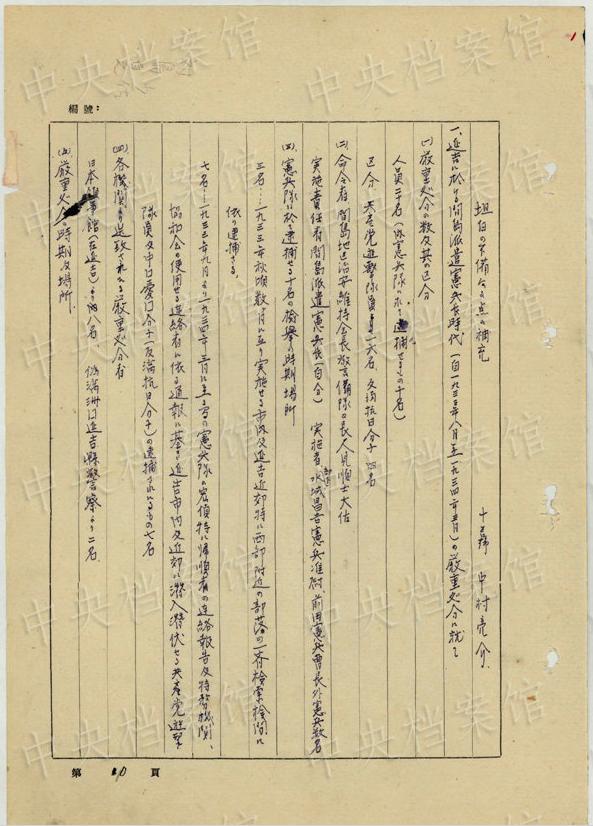 檔號：
坦白の不備なる点の補充
十号 中村亮介
一、延吉に於ける間島派遣憲兵長時代（自一九三三年八月至一九三四年三月）の厳重処分に就て
(一) 厳重処分の数及其の区分
人員二十名（内憲兵隊の於て逮捕せるもの十名）
区分 共産党遊撃隊員 一六名 交通抗日分子 四名
(二) 命令者 間島地区治安維持会長 警備隊長 人見順士大佐
実施責任者 間島派遣憲兵長（自分） 実施者 水城昌吉憲兵准尉、前田憲兵曹長外憲兵数名
(三) 憲兵隊に於て逮捕せる十名の検挙の時期場所
三名：一九三三年秋頃数ヶ月に亘り実施せる市内及延吉近郊特に西部附近の部落の一斉検索検問に
依り逮捕さる、
七名：一九三三年九月より一九三四年三月に至る間の憲兵隊の密偵特に帰順者の連絡報告及特務機関、
協和会の使用せる連絡者に依る通報に基き延吉市内及近郊に潜入潜伏せる共産党遊撃
隊員及中国愛国分子（反満抗日分子）の逮捕されたるもの七名
(四) 各機関より送致されたる厳重処分者
日本領事館（在延吉）より八名、偽満洲国延吉縣警察より二名
(五) 厳重処分時期及場所、
第 10 頁
中央档案馆